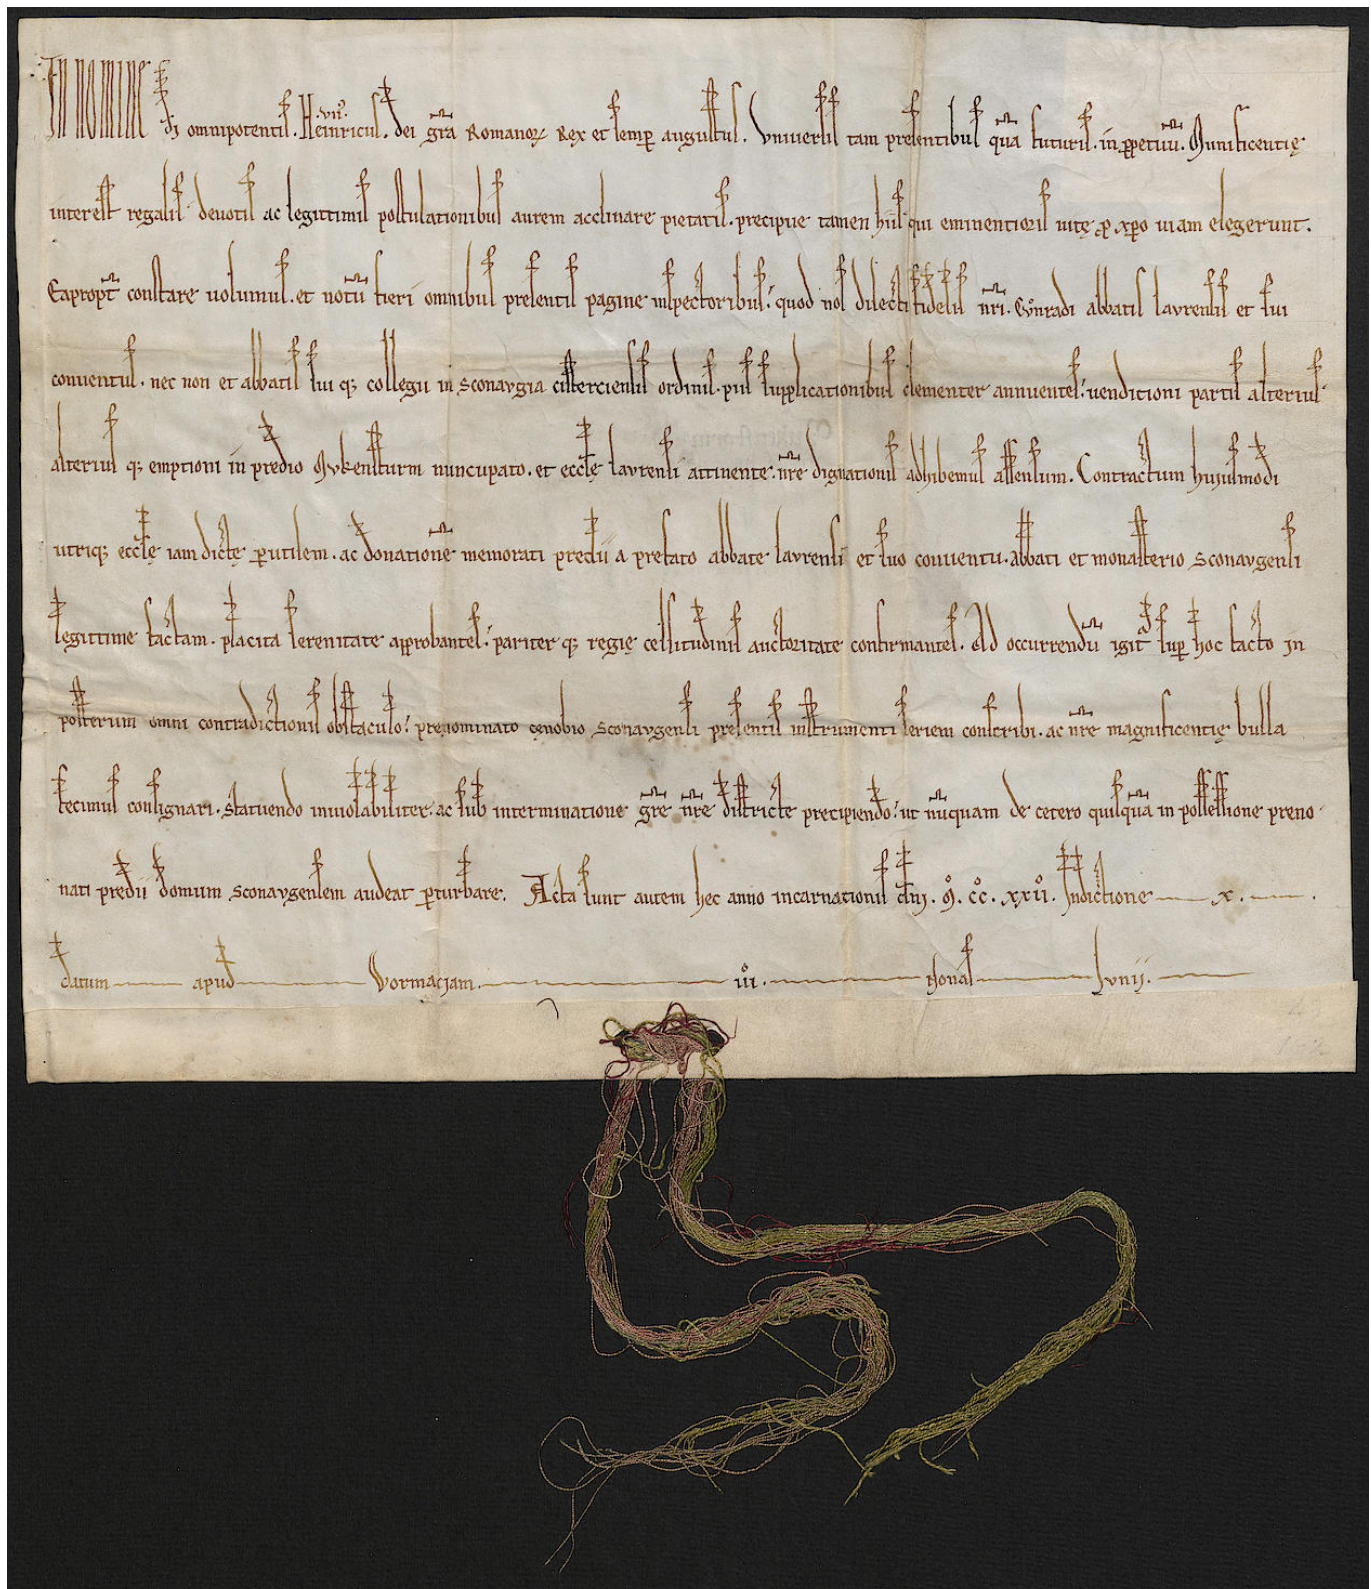 IN NOMINE dī omnipotentis. Heinricus .vii. dei gr̄a Romanorꝝ Rex et semꝑ augustus. Vniuersis tam presentibus quā futuris. in ꝑpetuū. Munificentię
interest regalis deuotis ac legittimis postulationibus aurem acclinare pietatis. precipue tamen hiis qui eminentioris uitę ꝓ xp̄o uiam elegerunt.
Eapropt̄ constare uolumus. et notū fieri omnibus presentis pagine inspectoribus. quod nos dilecti fidelis nr̄i. Cůnradi abbatis lavrensis et sui
conuentus. nec non et abbatis sui qꝫ collegii in sconavgia cisterciensis ordinis. piis supplicationibus clementer annuentes. uenditioni partis alterius.
alterius qꝫ emptioni in predio Mvkensturm nuncupato. et eccl̄ę lavrensi attinente. nr̄e dignationis adhibemus assensum. Contractum hujusmodi
utriqꝫ eccl̄ę iam dictę ꝑutilem. ac donationē memorati predii a prefato abbate lavrensi et suo conuentu. abbati et monasterio sconavgensi
legittime factam. placita serenitate approbantes. pariter qꝫ regię celsitudinis auctoritate confirmantes. Ad occurrendū igit̄ suꝑ hoc facto in
posterum omni contradictionis obstaculo. prenominato cenobio sconavgensi presentis instrumenti seriem conscribi. ac nr̄e magnificentię bulla
fecimus consignari. statuendo inuiolabiliter. ac sub interminatione gr̄e nr̄e districte precipiendo. ut nūquam de cetero quisquā in possessione preno
nati predii domum sconavgensem audeat ꝑturbare. Acta sunt autem hec anno incarnationis dn̄j. M̊. c̊c̊. xxůi. Indictione x.
datum apud Wormaciam. iiı̊. Nonas Ivnij.